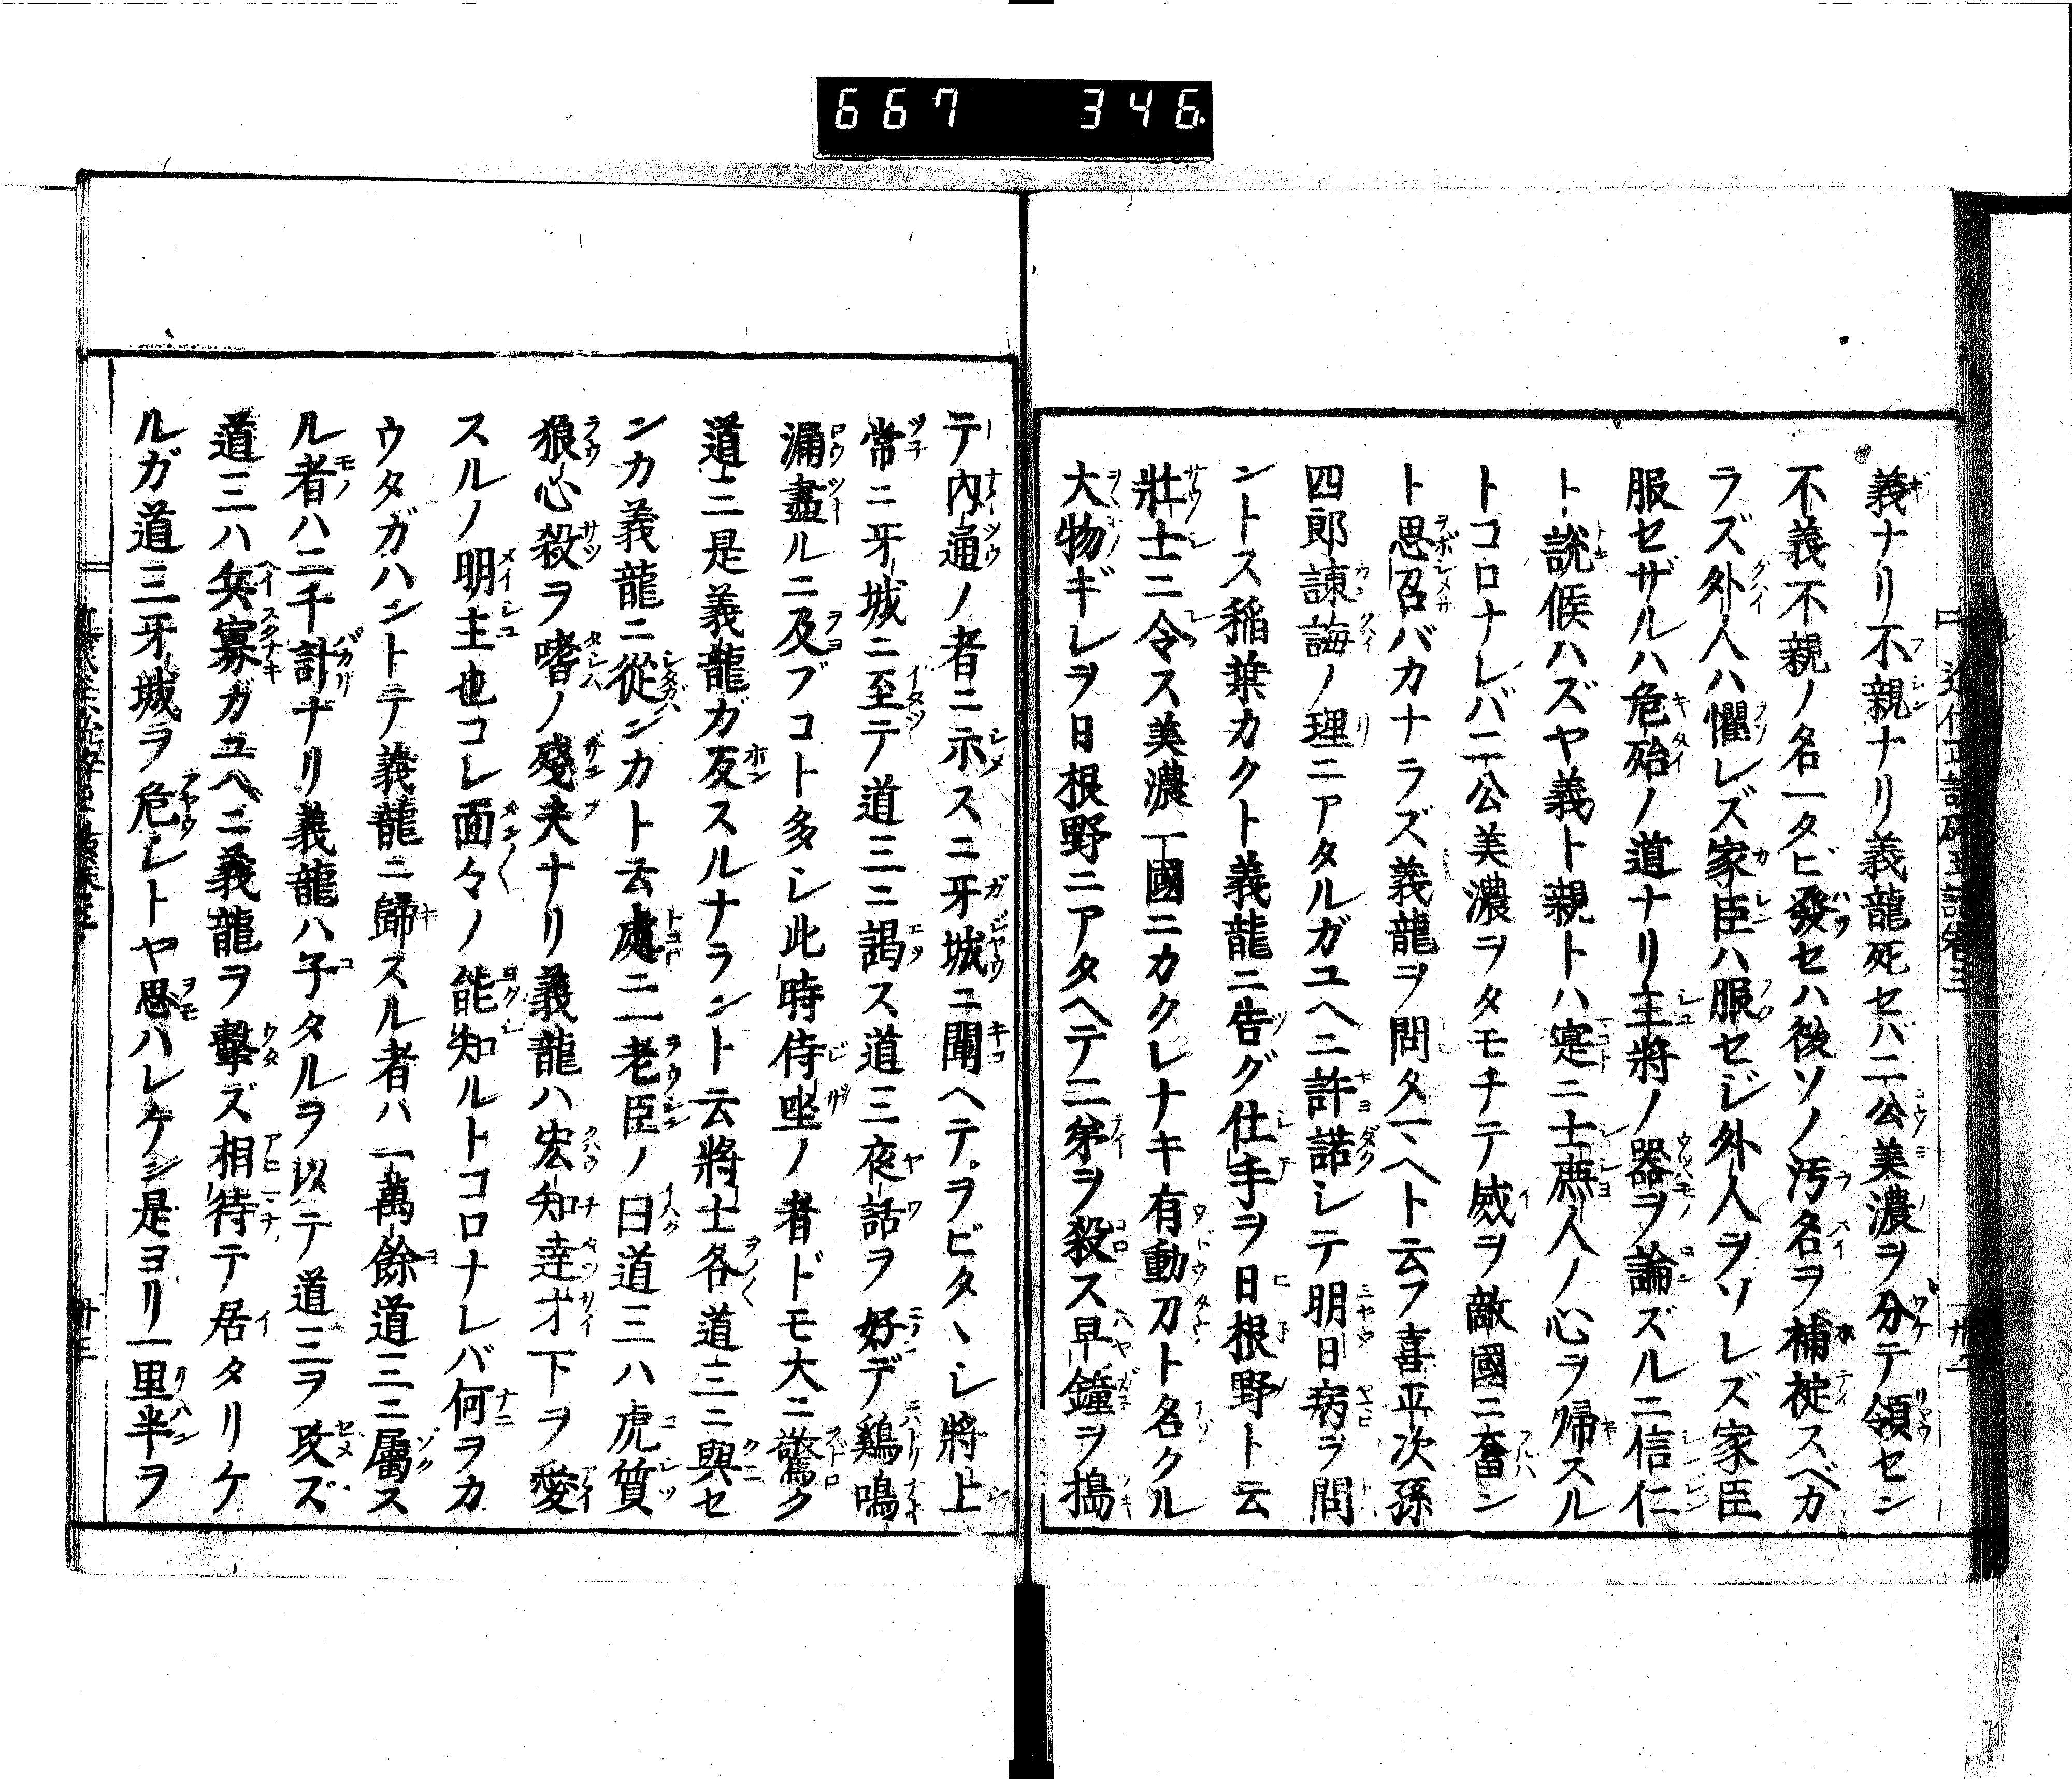 667 346.
義ナリ不親ナリ義龍死セバ二公美濃ヲ分テ領セン
不義不親ノ名一タビ發セハ後ソノ汚名ヲ補綻スベカ
ラズ外人ハ懼レズ家臣ハ服セジ外人ヲソレズ家臣
服セザルハ危殆ノ道ナリ主將ノ器ヲ論ズルニ信仁
ト説候ハズヤ義ト親トハ寔ニ士庶人ノ心ヲ帰スル
トコロナレバ二公美濃ヲタモチテ威ヲ敵國ニ奮ン
ト思召バカナラズ義龍ヲ問タマヘト云フ喜平次孫
四郎諫誨ノ理ニアタルガユヘニ許諾シテ明日病ヲ問
ントス稲葉カクト義龍ニ告グ仕手ヲ日根野ト云
壯士ニ令ス美濃一國ニカクレナキ有動刀ト名クル
大物ギレヲ日根野ニアタヘテ二弟ヲ殺ス早鐘ヲ搗
テ内通ノ者ニ示スニ牙城ニ聞ヘテヲビタヽシ將上
常ニ牙城ニ至テ道三ニ謁ス道三夜話ヲ好デ鷄鳴
漏盡ルニ及ブコト多シ此時侍坐ノ者ドモ大ニ驚ク
道三是義龍ガ反スルナラント云將士各道三ニ與セ
ンカ義龍ニ從ンカト云處ニ一老臣ノ曰道三ハ虎質
狼心殺ヲ嗜ノ殘夫ナリ義龍ハ宏知達才下ヲ愛
スルノ明主也コレ面々ノ能知ルトコロナレバ何ヲカ
ウタガハントテ義龍ニ歸スル者ハ一萬餘道三ニ屬ス
ル者ハ二千計ナリ義龍ハ子タルヲ以テ道三ヲ攻ズ
道三ハ兵寡ガユヘニ義龍ヲ擊ズ相待テ居タリケ
ルガ道三牙城ヲ危シトヤ思ハレケン是ヨリ一里半ヲ